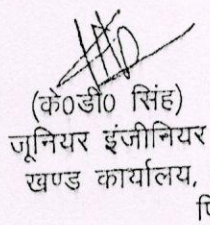 (के0डी0 सिंह)
जूनियर इंजीनियर
खण्ड कार्यालय,